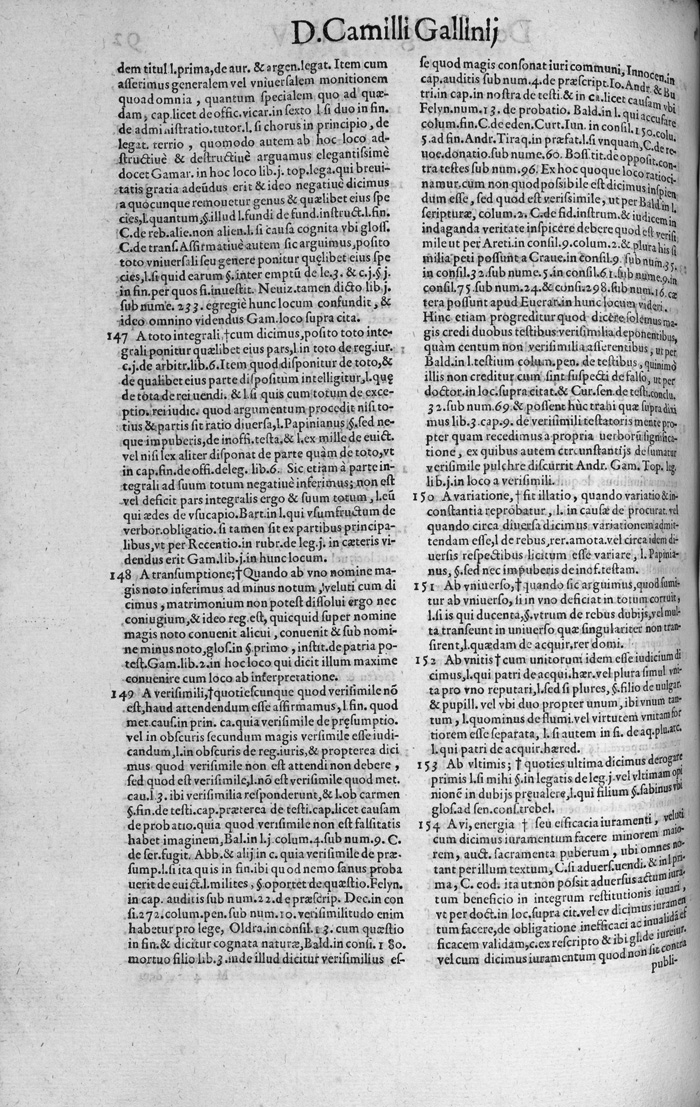 D. Camilli Gallinij
dem titul l. prima, de aur. & argen. legat. Item cum
asserimus generalem vel vniuersalem monitionem
quoad omnia, quantum specialem quo ad quæ-
dam, cap. licet de offic. vicar. in sexto l. si duo in fin.
de administratio. tutor. l. si chorus in principio, de
legat. terrio, quomodo autem ab hoc loco ad-
structiuè & destructiuè arguamus elegantissimè
docet Gamar. in hoc loco lib. j. top. lega. qui breui-
tatis gratia adeūdus erit & ideo negatiuè dicimus
a quocunque remouetur genus & quælibet eius spe
cies, l. quantum, §. illud l. fundi de fund. instruct. l. fin.
C. de reb. alie. non alien. l. si causa cognita vbi gloss.
C. de trans. Affirmatiuè autem sic arguimus, posito
toto vniuersali seu genere ponitur quęlibet eius spe
cies, l. si quid earum §. inter emptū de le. 3. & c. j. §. j.
in fin. per quos fi. inuestit. Neuiz. tamen dicto lib. j.
sub nume. 233. egregiè hunc locum confundit, &
ideo omnino videndus Gam. loco supra cita.
147 A toto integrali, † cum dicimus, posito toto inte-
grali ponitur quælibet eius pars, l. in toto de reg. iur.
c. j. de arbitr. lib. 6. Item quod disponitur de toto, &
de qualibet eius parte dispositum intelligitur, l. quę
de tota de rei uendi. & l. si quis cum totum de exce-
ptio. rei iudic. quod argumentum procedit nisi to-
tius & partis sit ratio diuersa, l. Papinianus §. sed ne-
que impuberis, de inoffi. testa, & l. ex mille de euict.
vel nisi lex aliter disponat de parte quàm de toto, vt
in cap. fin. de offi. deleg. lib. 6. Sic etiam à parte in-
tegrali ad suum totum negatiuè inferimus; non est
vel deficit pars integralis ergo & suum totum, l. eū
qui ædes de vsucapio. Bart. in l. qui vsumfructum de
verbor. obligatio. si tamen sit ex partibus principa-
libus, vt per Recentio. in rubr. de leg. j. in cæteris vi-
dendus erit Gam. lib. j. in hunc locum.
148 A transumptione; † Quando ab vno nomine ma-
gis noto inferimus ad minus notum, veluti cum di
cimus, matrimonium non potest dissolui ergo nec
coniugium, & ideo reg. est, quicquid super nomine
magis noto conuenit alicui, conuenit & sub nomi-
ne minus noto, glos. in §. primo, instit. de patria po-
test. Gam. lib. 2. in hoc loco qui dicit illum maxime
conuenire cum loco ab interpretatione.
149 A verisimili, † quotiescunque quod verisimile nō
est, haud attendendum esse affirmamus, l. fin. quod
met. caus. in prin. ca. quia verisimile de pręsumptio.
vel in obscuris secundum magis verisimile esse iudi-
candum, l. in obscuris de reg. iuris, & propterea dici
mus quod verisimile non est attendi non debere,
sed quod est verisimile, l. nō est verisimile quod met.
cau. l. 3. ibi verisimilia responderunt, & l. ob carmen
§. fin. de testi. cap. præterea de testi. cap. licet causam
de probatio. quia quod verisimile non est falsitatis
habet imaginem, Bal. in l. j. colum. 4. sub num. 9. C.
de ser. fugit. Abb. & alij in c. quia verisimile de præ-
sump. l. si ita quis in fin. ibi quod nemo sanus proba
uerit de euict. l. milites, §. oportet de quæstio. Felyn.
in cap. auditis sub num. 22. de præscrip. Dec. in con
si. 272. colum. pen. sub num. 10. verisimilitudo enim
habetur pro lege, Oldra. in consil. 13. cum quæstio
in fin. & dicitur cognata naturæ, Bald. in consi. 180.
mortuo filio lib. 3. inde illud dicitur verisimilius es-
se quod magis consonat iuri communi, Innocen. in
cap. auditis sub num. 4. de præscript. Io. Andr. & Bu
tri. in cap. in nostra de testi. & in ca. licet causam vbi
Felyn. num. 13. de probatio. Bald. in l. qui accusare
colum. fin. C. de eden. Curt. Iun. in consil. 150. colu.
5. ad fin. Andr. Tiraq. in præfat. l. si vnquam, C. de re-
uoc. donatio. sub nume. 60. Boss. tit. de opposit. con-
tra testes sub num. 96. Ex hoc quoque loco ratioci-
namur. cum non quod possibile est dicimus inspicien
dum esse, sed quod est verisimile, ut per Bald. in l.
scripturæ, colum. 2. C. de fid. instrum. & iudicem in
indaganda veritate inspicere debere quod est verisi
mile ut per Areti. in consil. 9. colum. 2. & plura his si
milia peti possunt a Craue. in consil. 9. sub num. 35.
in consil. 32. sub nume. 5. in consil. 61. sub nume. 9. in
consil. 75. sub num. 24. & consi. 298. sub num. 16. cæ
tera possunt apud Euerar. in hunc locum videri.
Hinc etiam progreditur quod dicere solemus ma-
gis credi duobus testibus verisimilia deponentibus,
quàm centum non verisimilia asserentibus, ut per
Bald. in l. testium colum. pen. de testibus, quinimò
illis non creditur cum sint suspecti de falso, ut per
doctor. in loc. supra citat. & Cur. sen. de testi. conclu.
32. sub num. 69. & possent hùc trahi quæ supra dixi
mus lib. 3. cap. 9. de verisimili testatoris mente pro-
pter quam recedimus a propria uerborū significa-
tione, ex quibus autem circunstantijs desumatur
verisimile pulchre discurrit Andr. Gam. Top. leg.
lib. j. in loco a verisimili.
150 A variatione, † fit illatio, quando variatio & in-
constantia reprobatur, l. in causæ de procurat. vel
quando circa diuersa dicimus variationem admit-
tendam esse, l. de rebus, rer. amota. vel circa idem di
uersis respectibus licitum esse variare, l. Papinia-
nus, §. sed nec impuberis de inof. testam.
151 Ab vniuerso, † quando sic arguimus, quod sumi-
tur ab vniuerso, si in vno deficiat in totum corruit,
l. si is qui ducenta, §. vtrum de rebus dubijs, vel mul-
ta transeunt in uniuerso quæ singulariter non tran-
sirent, l. quædam de acquir. rer domi.
152 Ab vnitis † cum unitorum idem esse iudicium di
cimus, l. qui patri de acqui. hær. vel plura simul vni-
ta pro vno reputari, l. sed si plures, §. filio de uulgar.
& pupill. vel vbi duo propter unum, ibi vnum tan-
tum, l. quominus de flumi. vel virtutem vnitam for
tiorem esse separata, l. si autem in fi. de aq. plu. arc.
l. qui patri de acquir. hæred.
153 Ab vltimis; † quoties ultima dicimus derogare
primis l. si mihi §. in legatis de leg. j. vel vltimam opi
nionē in dubijs pręualere, l. qui filium §. sabinus vbi
glos. ad sen. cons. trebel.
154 A vi, energia † seu efficacia iuramenti, veluti
cum dicimus iuramentum facere minorem maio-
rem, auct. sacramenta puberum, ubi omnes no-
tant per illum textum, C. si aduers. uendi. & in l. pri-
ma, C. eod. ita ut non possit aduersus actum iura-
tum beneficio in integrum restitutionis iuuari,
vt per doct. in loc. supra cit. vel cv dicimus iuramen
tum facere, de obligatione inefficaci ac inualida ef
ficacem validam, c. ex rescripto & ibi gl. de iureiur.
vel cum dicimus iuramentum quod non sit contra
publi-